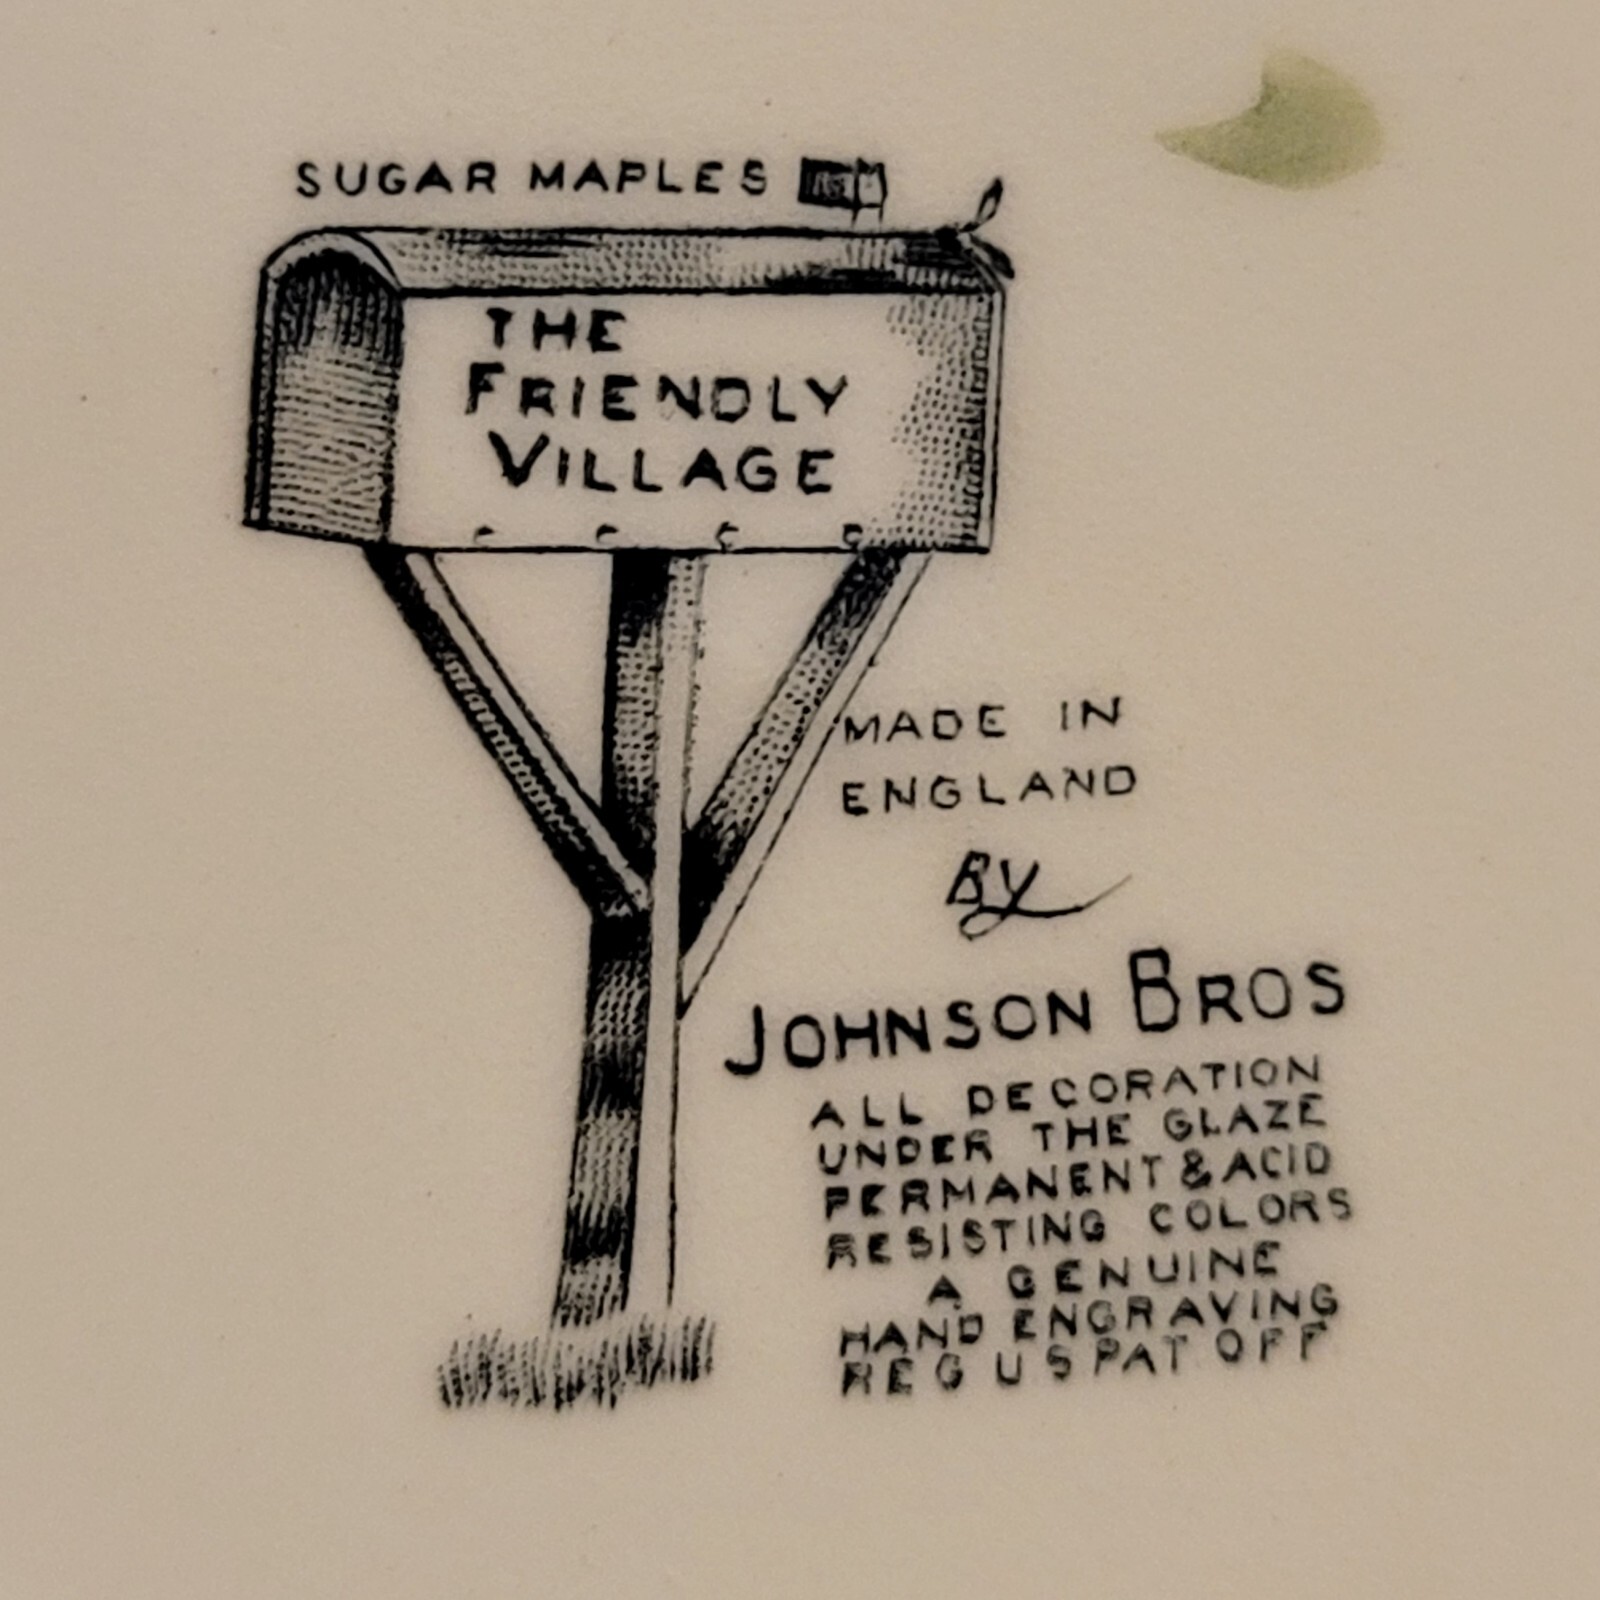 SUGAR MAPLES
THE
FRIENDLY
VILLAGE
MADE IN
ENGLAND
By
JOHNSON BROS
ALL DECORATION
UNDER THE GLAZE
PERMANENT & ACID
RESISTING COLORS
A GENUINE
HAND ENGRAVING
REG U S PAT OFF